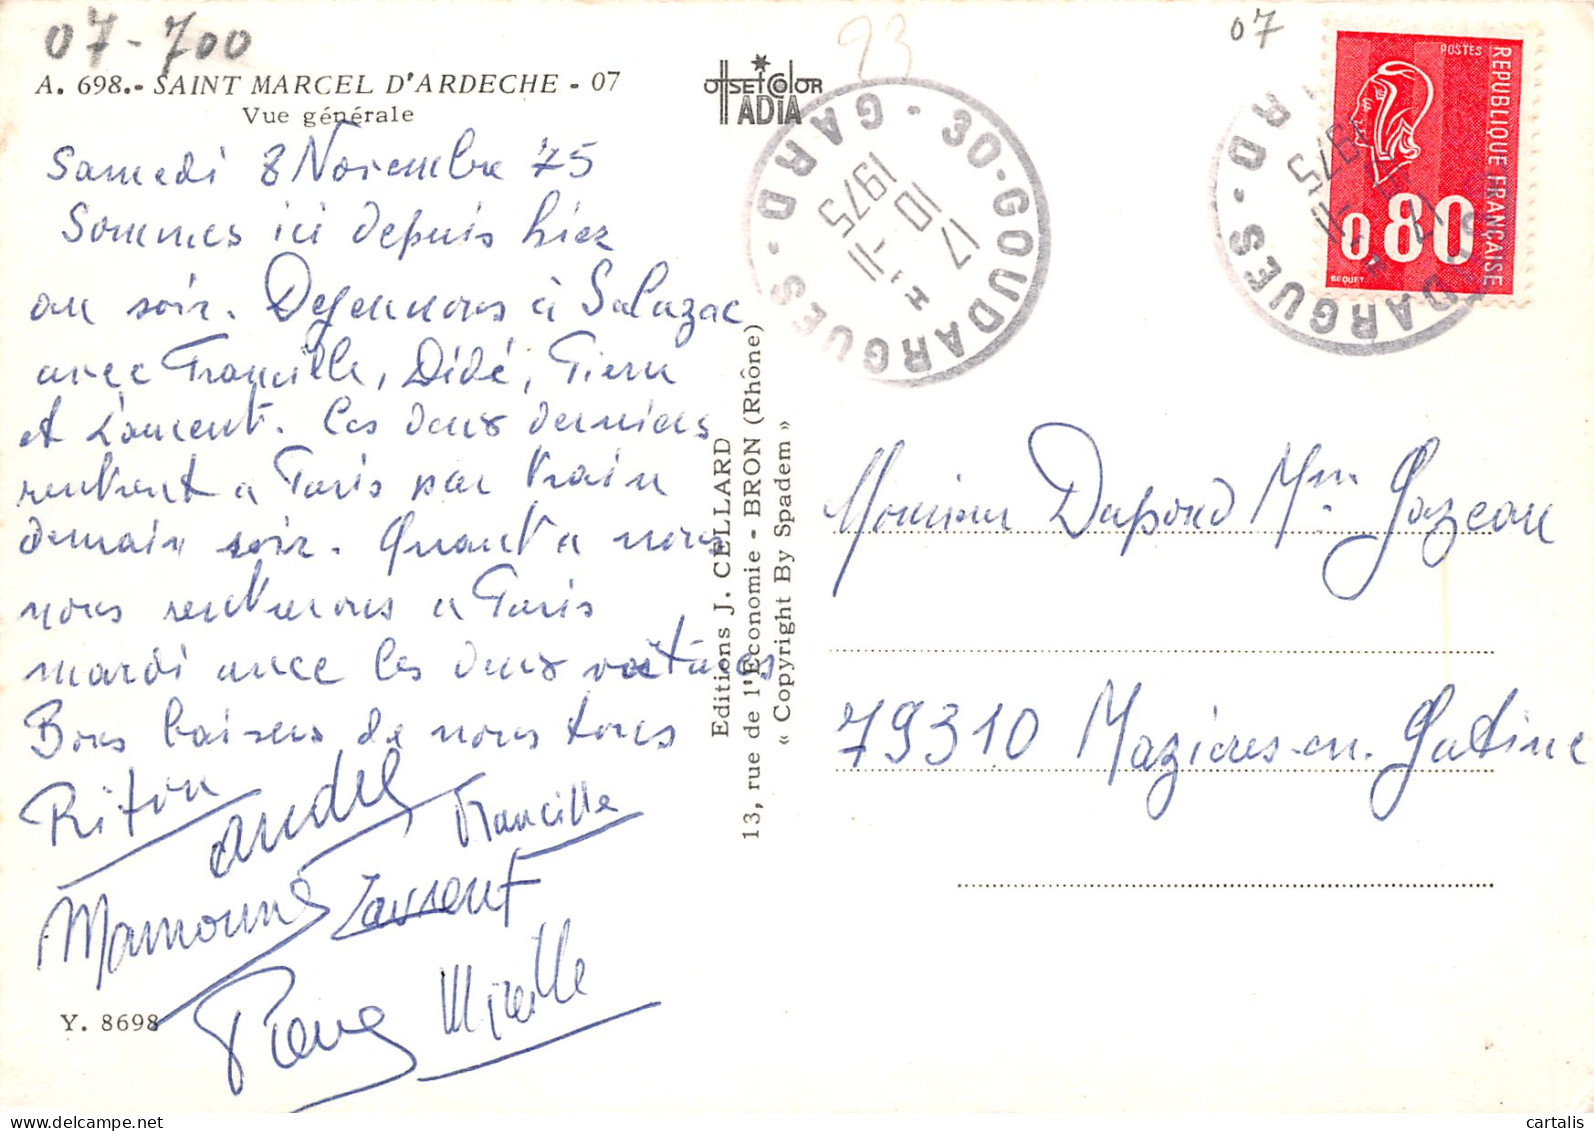 07-700
A. 698.- SAINT MARCEL D'ARDECHE - 07
Vue générale
Samedi 8 Novembre 75
Sommes ici depuis hier
au soir. Dejeunons à Salazac
avec Francille, Dédé, Pierre
et Laurent. Ces deux derniers
rentrent a Paris par train
demain soir. Quant a nous
nous rentrerons a Paris
mardi avec les deux voitures
Bons baisers de nous tous
Riton André Francille
Mamoune Laurent
Pierre Mireille
Y. 8698
OffsetColor
ADIA
Editions J. CELLARD
13, rue de l'Economie - BRON (Rhône)
« Copyright By Spadem »
93
30-GOUDARGUES - GARD
17 H
10 -11
1975
07
POSTES
REPUBLIQUE FRANÇAISE
0,80
BEQUET
DARGUES - RD
17 H
-11
1975
Monsieur Dupond Mme Gazeau
79310 Mazières-en-Gatine
cartalis.com